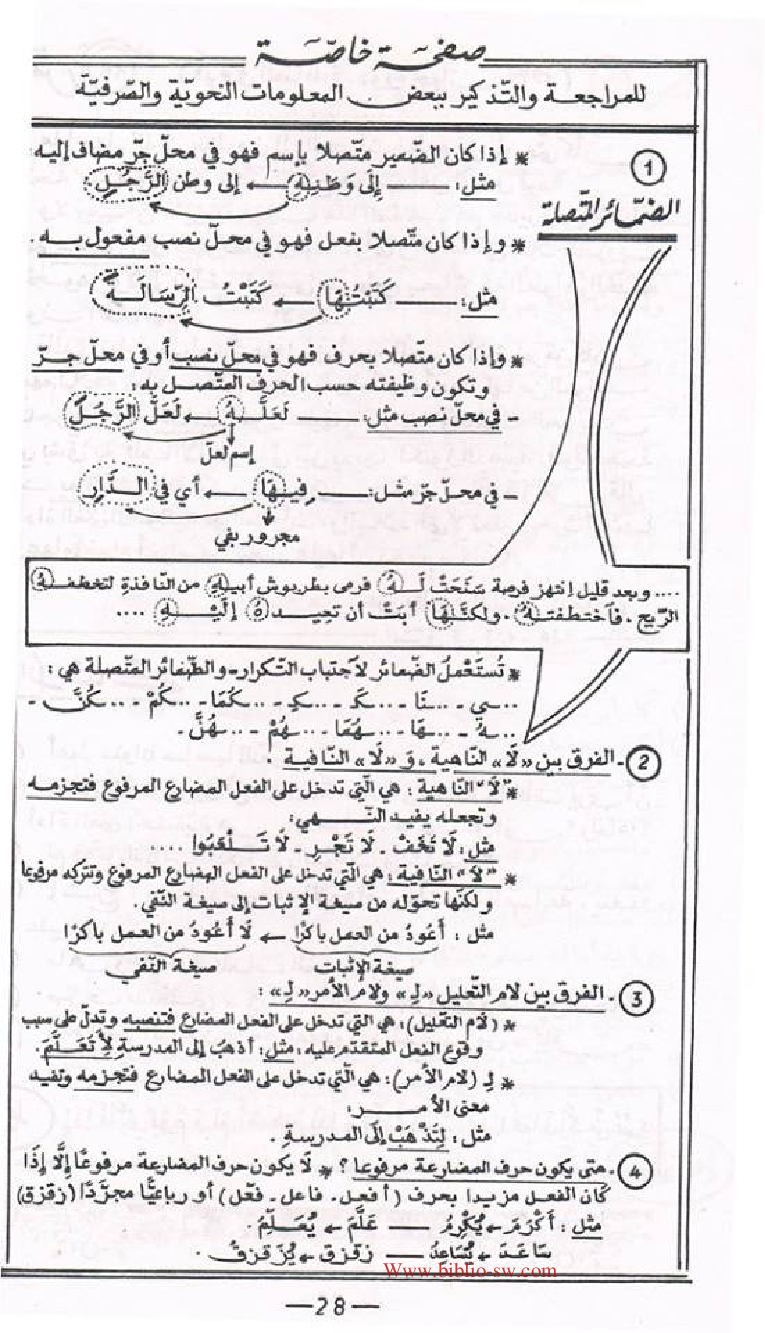 صفحة خاصّة
للمراجعة والتّذكير ببعض المعلومات النحويّة والصّرفيّة
1
الضّمائر المتّصلة
* إذا كان الضمير متّصلا بإسم فهو في محلّ جرّ مضاف إليه.
مثل: إلَى وَطَنِهِ ← إلى وطن الرَّجُلِ
* وإذا كان متّصلا بفعل فهو في محلّ نصب مفعول به.
مثل: كَتَبْتُهَا ← كَتَبْتُ الرِّسَالَةَ
* وإذا كان متّصلا بحرف فهو في محلّ نصب أو في محلّ جرّ
وتكون وظيفته حسب الحرف المتّصل به:
- في محلّ نصب مثل: لَعَلَّهُ ← لَعَلَّ الرَّجُلَ
إسم لعلّ
- في محلّ جرّ مثل: فِيهَا ← أي في الدَّارِ
مجرور بفي
.... وبعد قليل إنتهز فرصة سَنَحَتْ لَهُ فرمى بطربوش أبيهِ من النّافذةِ لتخطفهُ
الرّيح. فآختطفتهُ. ولكنَّهَا أبَتْ أن تعيدهُ إلَيْهِ ....
* تُستَعْملُ الضّمائر لآجتياب التّكرار- والضّمائر المتّصلة هي:
...ي - ...نَا - ...كَ - ...كِ - ...كُمَا - ...كُمْ - ...كُنَّ -
...هُ - ...هَا - ...هُمَا - ...هُمْ - ...هُنَّ.
2 - الفرق بين «لَا» النّاهية، وَ «لَا» النّافية.
* "لَا" النّاهية: هي الّتي تدخل على الفعل المضارع المرفوع فتجزمه
وتجعله يفيد النّهي:
مثل: لَا تَخَفْ - لَا تَجْرِ - لَا تَلْعَبُوا ....
* "لَا" النّافية: هي الّتي تدخل على الفعل المضارع المرفوع وتتركه مرفوعا
ولكنّها تحوّله من صيغة الإثبات إلى صيغة النّفي.
مثل: أَعُودُ من العمل باكرًا ← لَا أَعُودُ من العمل باكرًا
صيغة الإثبات صيغة النّفي
3 - الفرق بين لام التّعليل «لِ» ولام الأمر «لِ»:
* (لام التّعليل): هي التي تدخل على الفعل المضارع فتنصبه وتدل على سبب
وقوع الفعل المتقدم عليه: مثل: أذهبُ إلى المدرسةِ لِأَتَعَلَّمَ.
* لِـ (لام الأمر): هي الّتي تدخل على الفعل المضارع فتجزمه وتفيه
معنى الأمر:
مثل: لِتَذْهَبْ إلَى المدرسةِ.
4 - متى يكون حرف المضارعة مرفوعا؟ * لا يكون حرف المضارعة مرفوعًا إلَّا إذَا
كان الفعل مزيدا بحرف (أفعل. فاعل. فعّل) أو رباعيًّا مجرَّدًا (زقزق)
مثل: أَكْرَمَ ← يُكْرِمُ — عَلَّمَ ← يُعَلِّمُ.
سَاعَدَ ← يُسَاعِدُ — زقزق ← يُزَقزقُ.
Www.biblio-sw.com
—28—